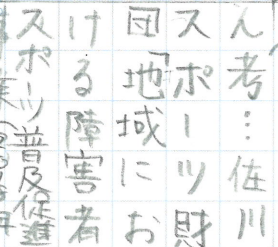 ん考…佐川
スポーツ財
団「地域にお
ける障害者
スポーツ普及促進